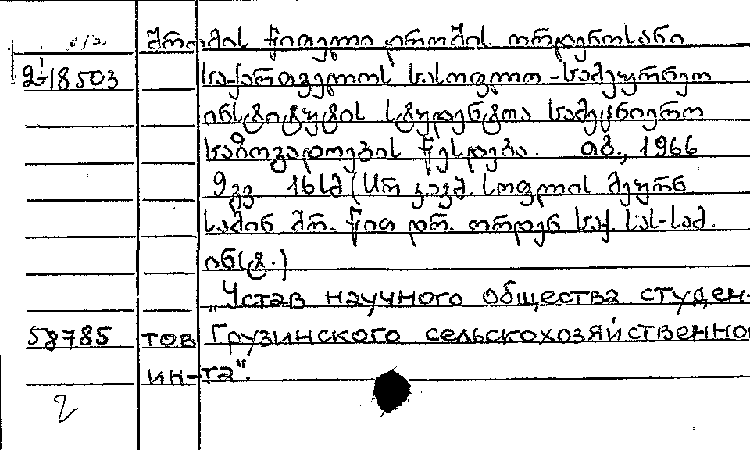 შრომის წითელი დროშის ორდენოსანი
2-18503 საქართველოს სასოფლო-სამეურნეო
ინსტიტუტის სტუდენტთა სამეცნიერო
საზოგადოების წესდება. თბ., 1966
9 გვ 16სმ (სსრ კავშ. სოფლის მეურნ
სამინ შრ. წით დრ. ორდენ საქ. სას-სამ.
ინსტ.)
„Устав научного общества студен-
58785 тов Грузинского сельскохозяйственно
ин-та".
2